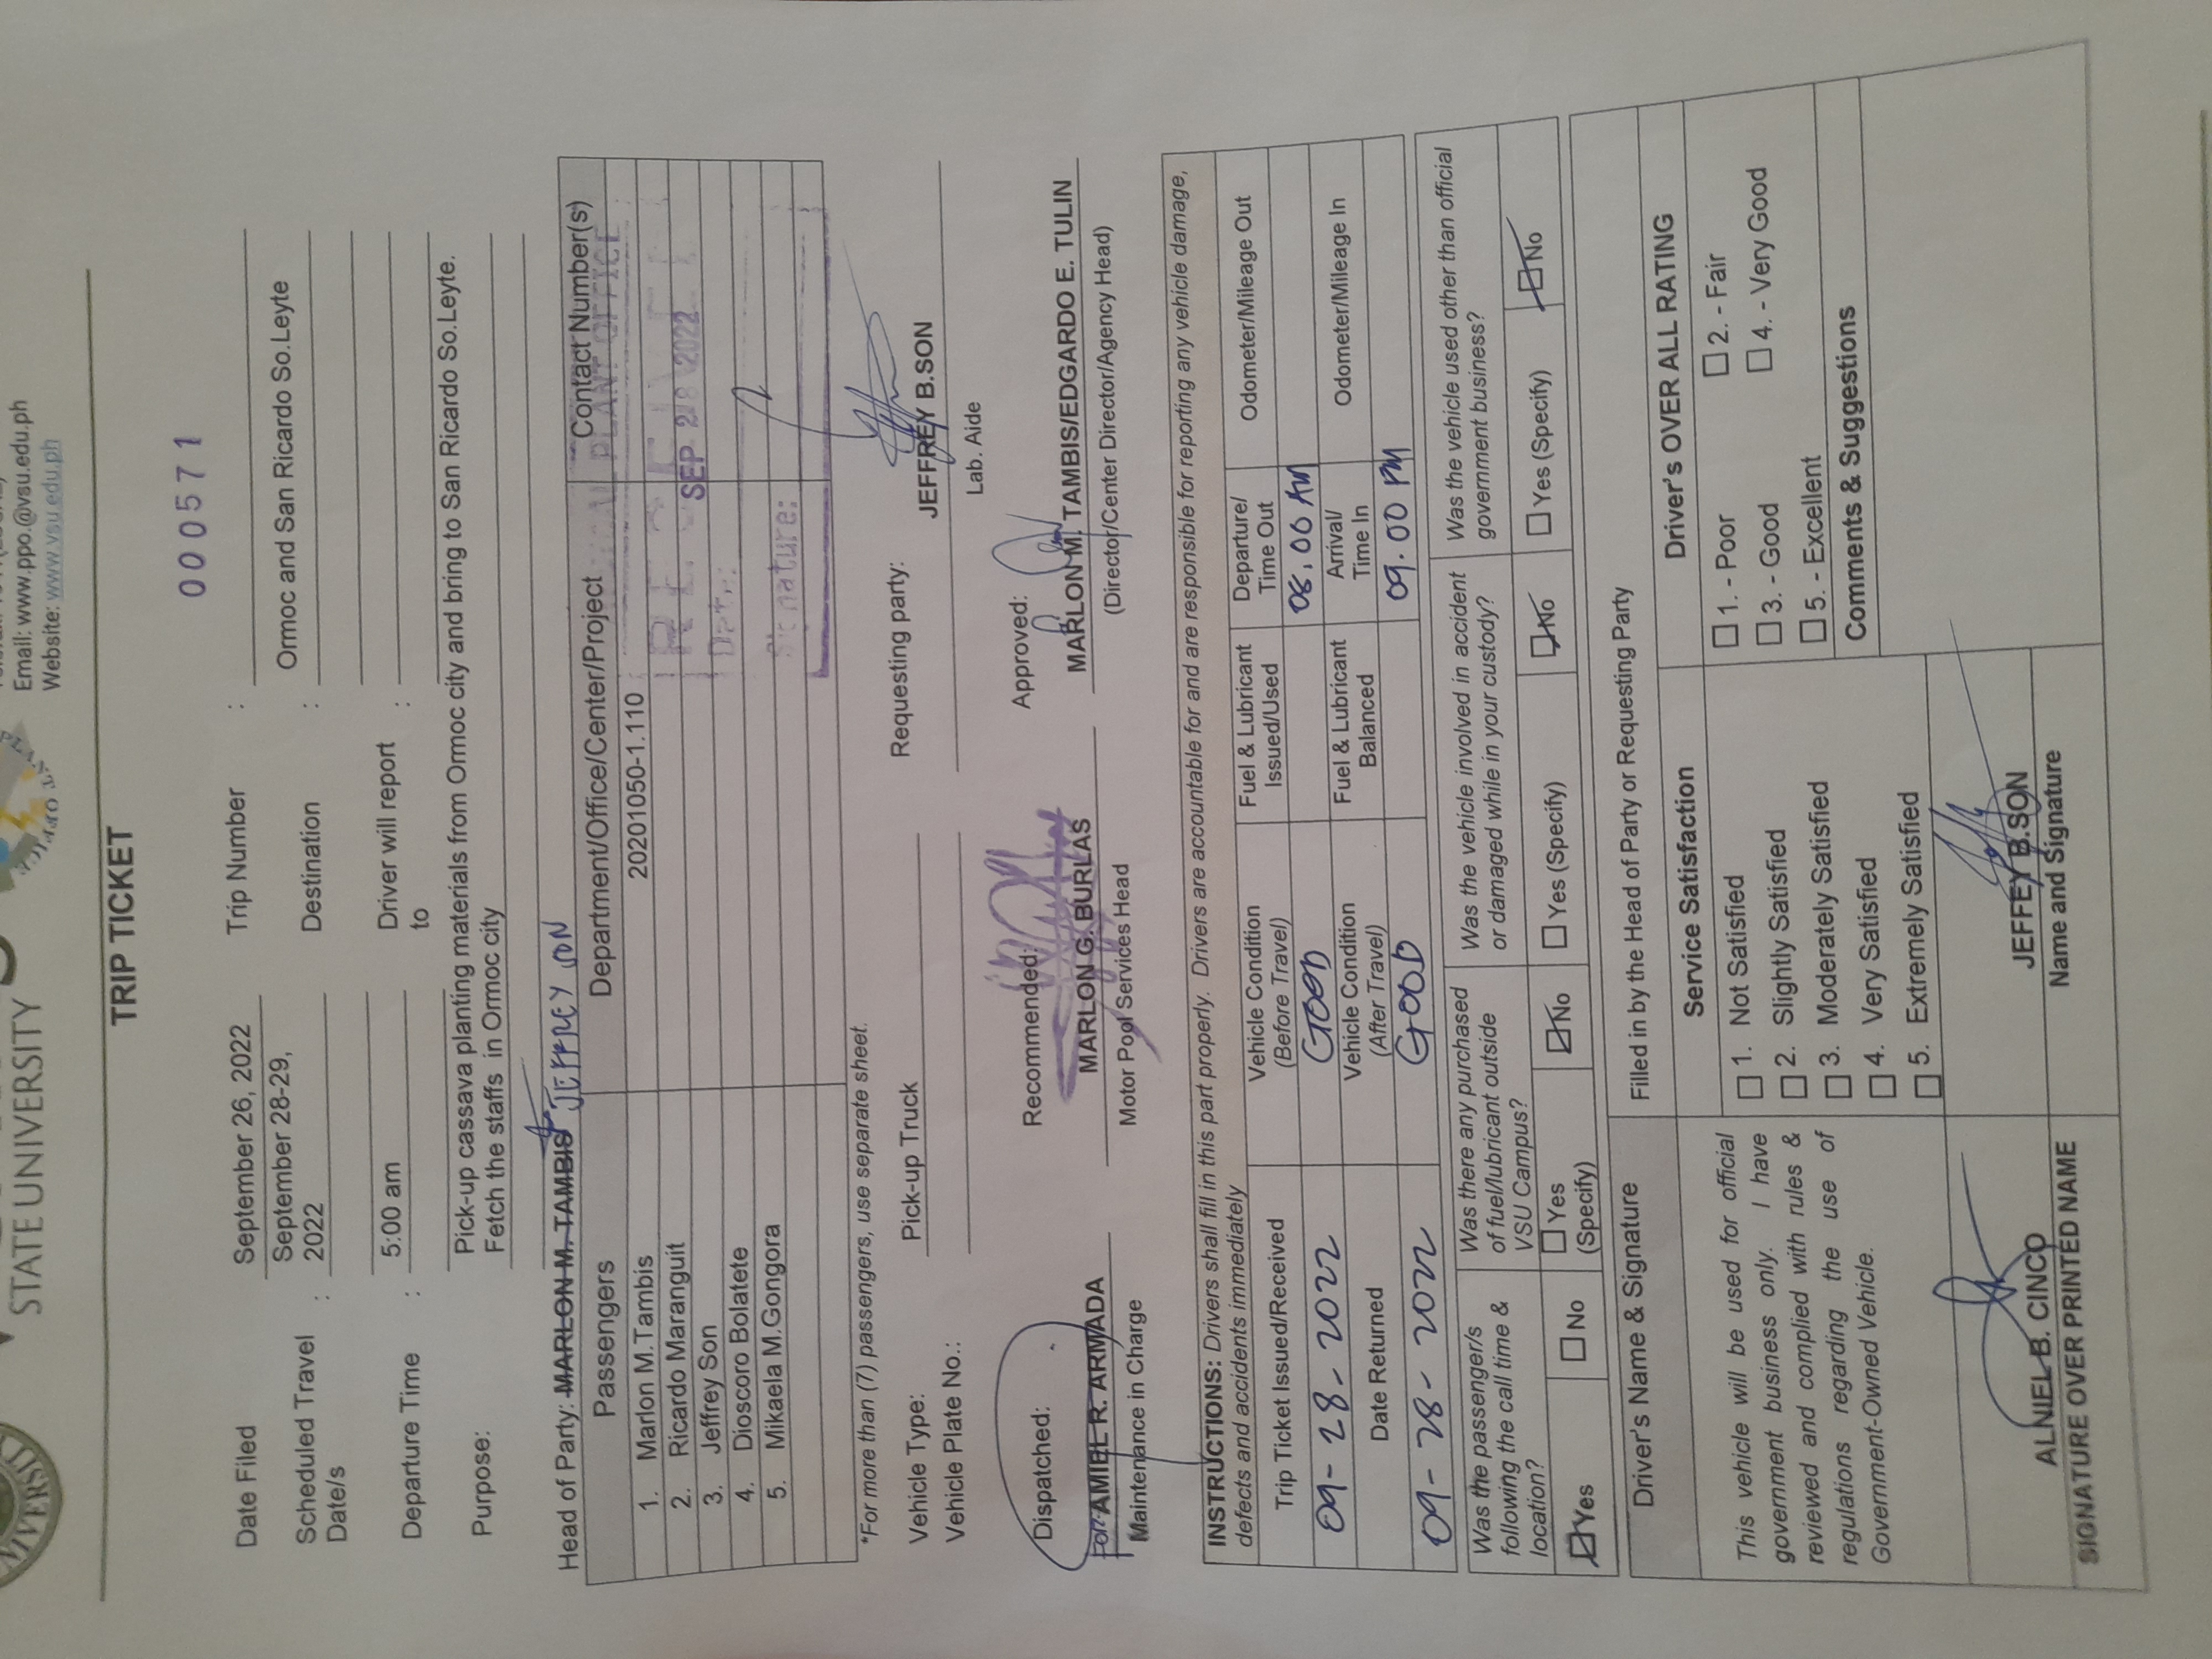 STATE UNIVERSITY
Email: www.ppo.@vsu.edu.ph
Website: www.vsu.edu.ph
TRIP TICKET
000571
Date Filed September 26, 2022 Trip Number :
Scheduled Travel Date/s : September 28-29, 2022 Destination : Ormoc and San Ricardo So.Leyte
Departure Time : 5:00 am Driver will report to :
Purpose: Pick-up cassava planting materials from Ormoc city and bring to San Ricardo So.Leyte.
Fetch the staffs in Ormoc city
Head of Party: MARLON M. TAMBIS JEFFREY SON
Passengers Department/Office/Center/Project Contact Number(s)
1. Marlon M.Tambis 20201050-1.110
2. Ricardo Maranguit
3. Jeffrey Son
4. Dioscoro Bolatete
5. Mikaela M.Gongora
PLANT OFFICE
SEP 28 2022
Signature:
*For more than (7) passengers, use separate sheet.
Vehicle Type: Pick-up Truck Requesting party:
Vehicle Plate No.: JEFFREY B.SON
Lab. Aide
Dispatched: Recommended: Approved:
For: AMIEL R. ARMADA MARLON G. BURLAS MARLON M. TAMBIS/EDGARDO E. TULIN
Maintenance in Charge Motor Pool Services Head (Director/Center Director/Agency Head)
INSTRUCTIONS: Drivers shall fill in this part properly. Drivers are accountable for and are responsible for reporting any vehicle damage,
defects and accidents immediately
Trip Ticket Issued/Received Vehicle Condition (Before Travel) Fuel & Lubricant Issued/Used Departure/ Time Out Odometer/Mileage Out
09-28-2022 GOOD 08:00 AM
Date Returned Vehicle Condition (After Travel) Fuel & Lubricant Balanced Arrival/ Time In Odometer/Mileage In
09-28-2022 GOOD 09:00 PM
Was the passenger/s following the call time & location? Was there any purchased of fuel/lubricant outside VSU Campus? Was the vehicle involved in accident or damaged while in your custody? Was the vehicle used other than official government business?
Yes No Yes (Specify) No Yes (Specify) No Yes (Specify) No
Driver's Name & Signature Filled in by the Head of Party or Requesting Party
Service Satisfaction Driver's OVER ALL RATING
This vehicle will be used for official
government business only. I have
reviewed and complied with rules &
regulations regarding the use of
Government-Owned Vehicle.
1. Not Satisfied
2. Slightly Satisfied
3. Moderately Satisfied
4. Very Satisfied
5. Extremely Satisfied
1. - Poor 2. - Fair
3. - Good 4. - Very Good
5. - Excellent
Comments & Suggestions
ALNIEL B. CINCO JEFFEY B.SON
SIGNATURE OVER PRINTED NAME Name and Signature